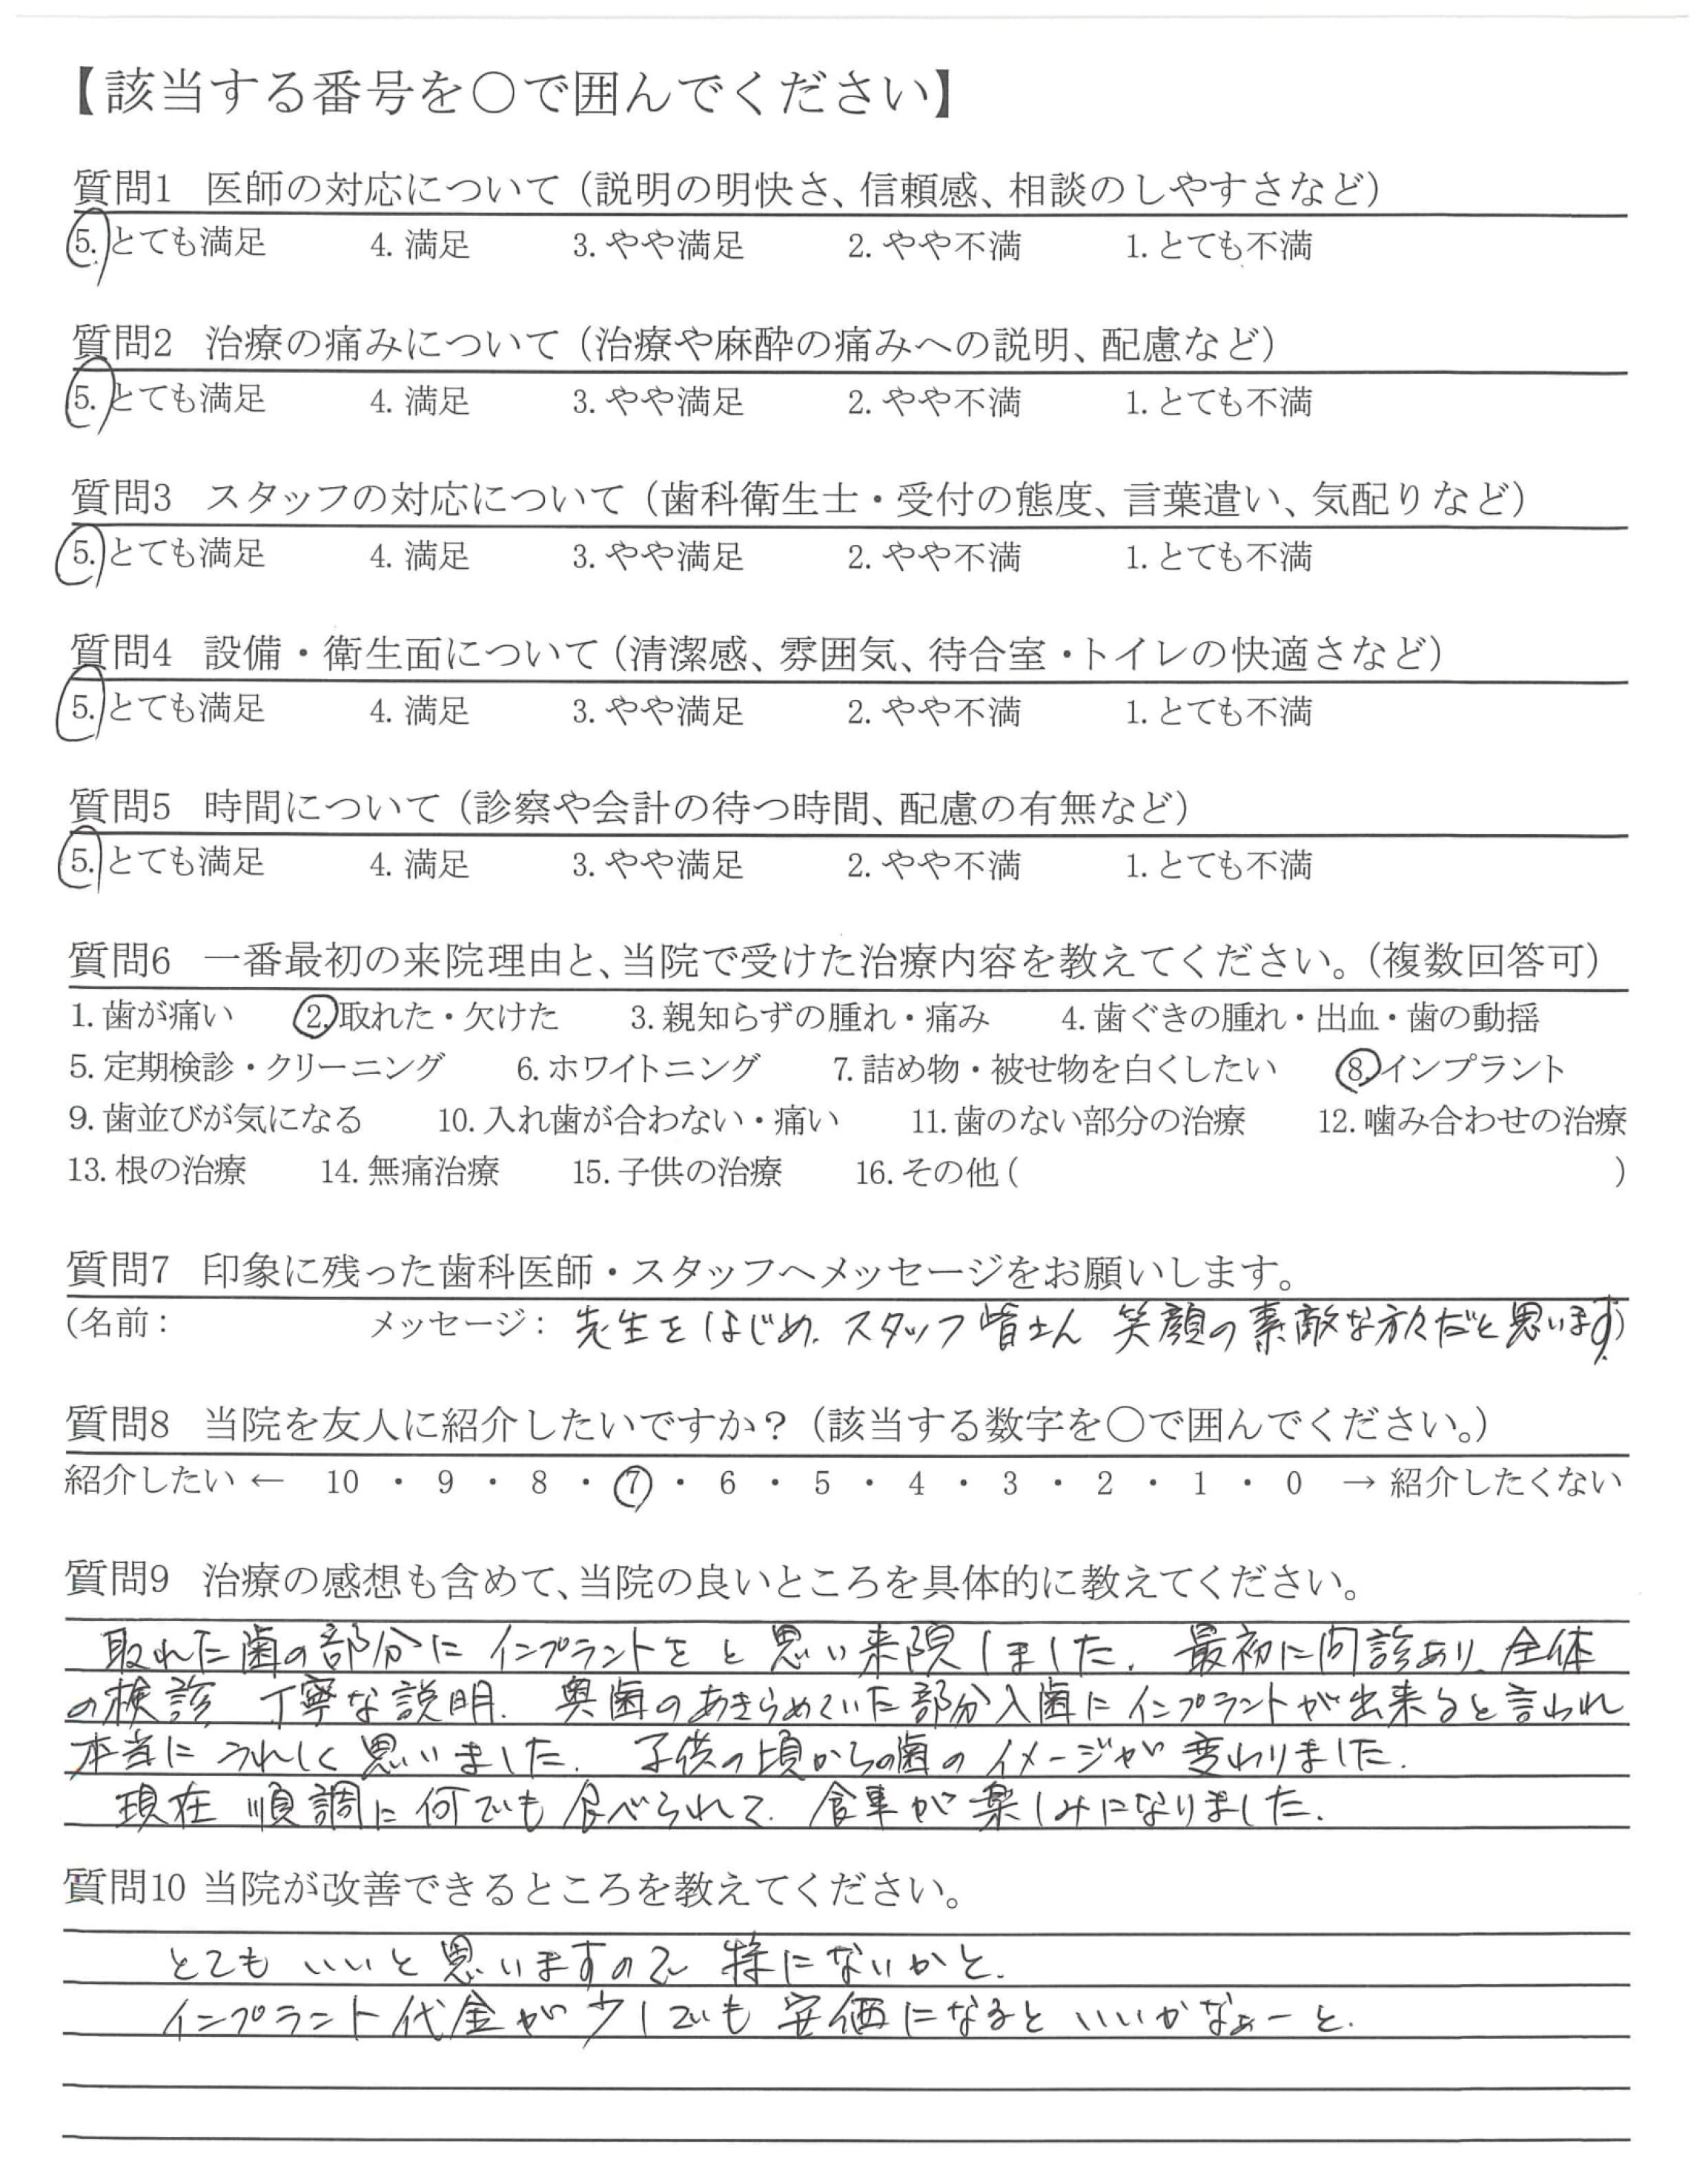 【該当する番号を○で囲んでください】
質問1 医師の対応について（説明の明快さ、信頼感、相談のしやすさなど）
5.とても満足 4.満足 3.やや満足 2.やや不満 1.とても不満
質問2 治療の痛みについて（治療や麻酔の痛みへの説明、配慮など）
5.とても満足 4.満足 3.やや満足 2.やや不満 1.とても不満
質問3 スタッフの対応について（歯科衛生士・受付の態度、言葉遣い、気配りなど）
5.とても満足 4.満足 3.やや満足 2.やや不満 1.とても不満
質問4 設備・衛生面について（清潔感、雰囲気、待合室・トイレの快適さなど）
5.とても満足 4.満足 3.やや満足 2.やや不満 1.とても不満
質問5 時間について（診察や会計の待つ時間、配慮の有無など）
5.とても満足 4.満足 3.やや満足 2.やや不満 1.とても不満
質問6 一番最初の来院理由と、当院で受けた治療内容を教えてください。（複数回答可）
1.歯が痛い 2.取れた・欠けた 3.親知らずの腫れ・痛み 4.歯ぐきの腫れ・出血・歯の動揺
5.定期検診・クリーニング 6.ホワイトニング 7.詰め物・被せ物を白くしたい 8.インプラント
9.歯並びが気になる 10.入れ歯が合わない・痛い 11.歯のない部分の治療 12.噛み合わせの治療
13.根の治療 14.無痛治療 15.子供の治療 16.その他（ ）
質問7 印象に残った歯科医師・スタッフへメッセージをお願いします。
（名前： メッセージ：先生をはじめ、スタッフ皆さん 笑顔の素敵な方々だと思います.）
質問8 当院を友人に紹介したいですか？（該当する数字を○で囲んでください。）
紹介したい ← 10 ・ 9 ・ 8 ・ 7 ・ 6 ・ 5 ・ 4 ・ 3 ・ 2 ・ 1 ・ 0 → 紹介したくない
質問9 治療の感想も含めて、当院の良いところを具体的に教えてください。
取れた歯の部分に インプラントをと 思い来院しました. 最初に問診あり、全体
の検診 丁寧な説明. 奥歯のあきらめていた部分入歯に インプラントが出来ると言われ
本当に うれしく思いました. 子供の頃からの歯の イメージが 変わりました.
現在 順調に 何でも 食べられて. 食事が 楽しみになりました.
質問10 当院が改善できるところを教えてください。
とても いいと 思いますので 特にないかと.
インプラント代金が 少しでも 安価になると いいかなぁーと.